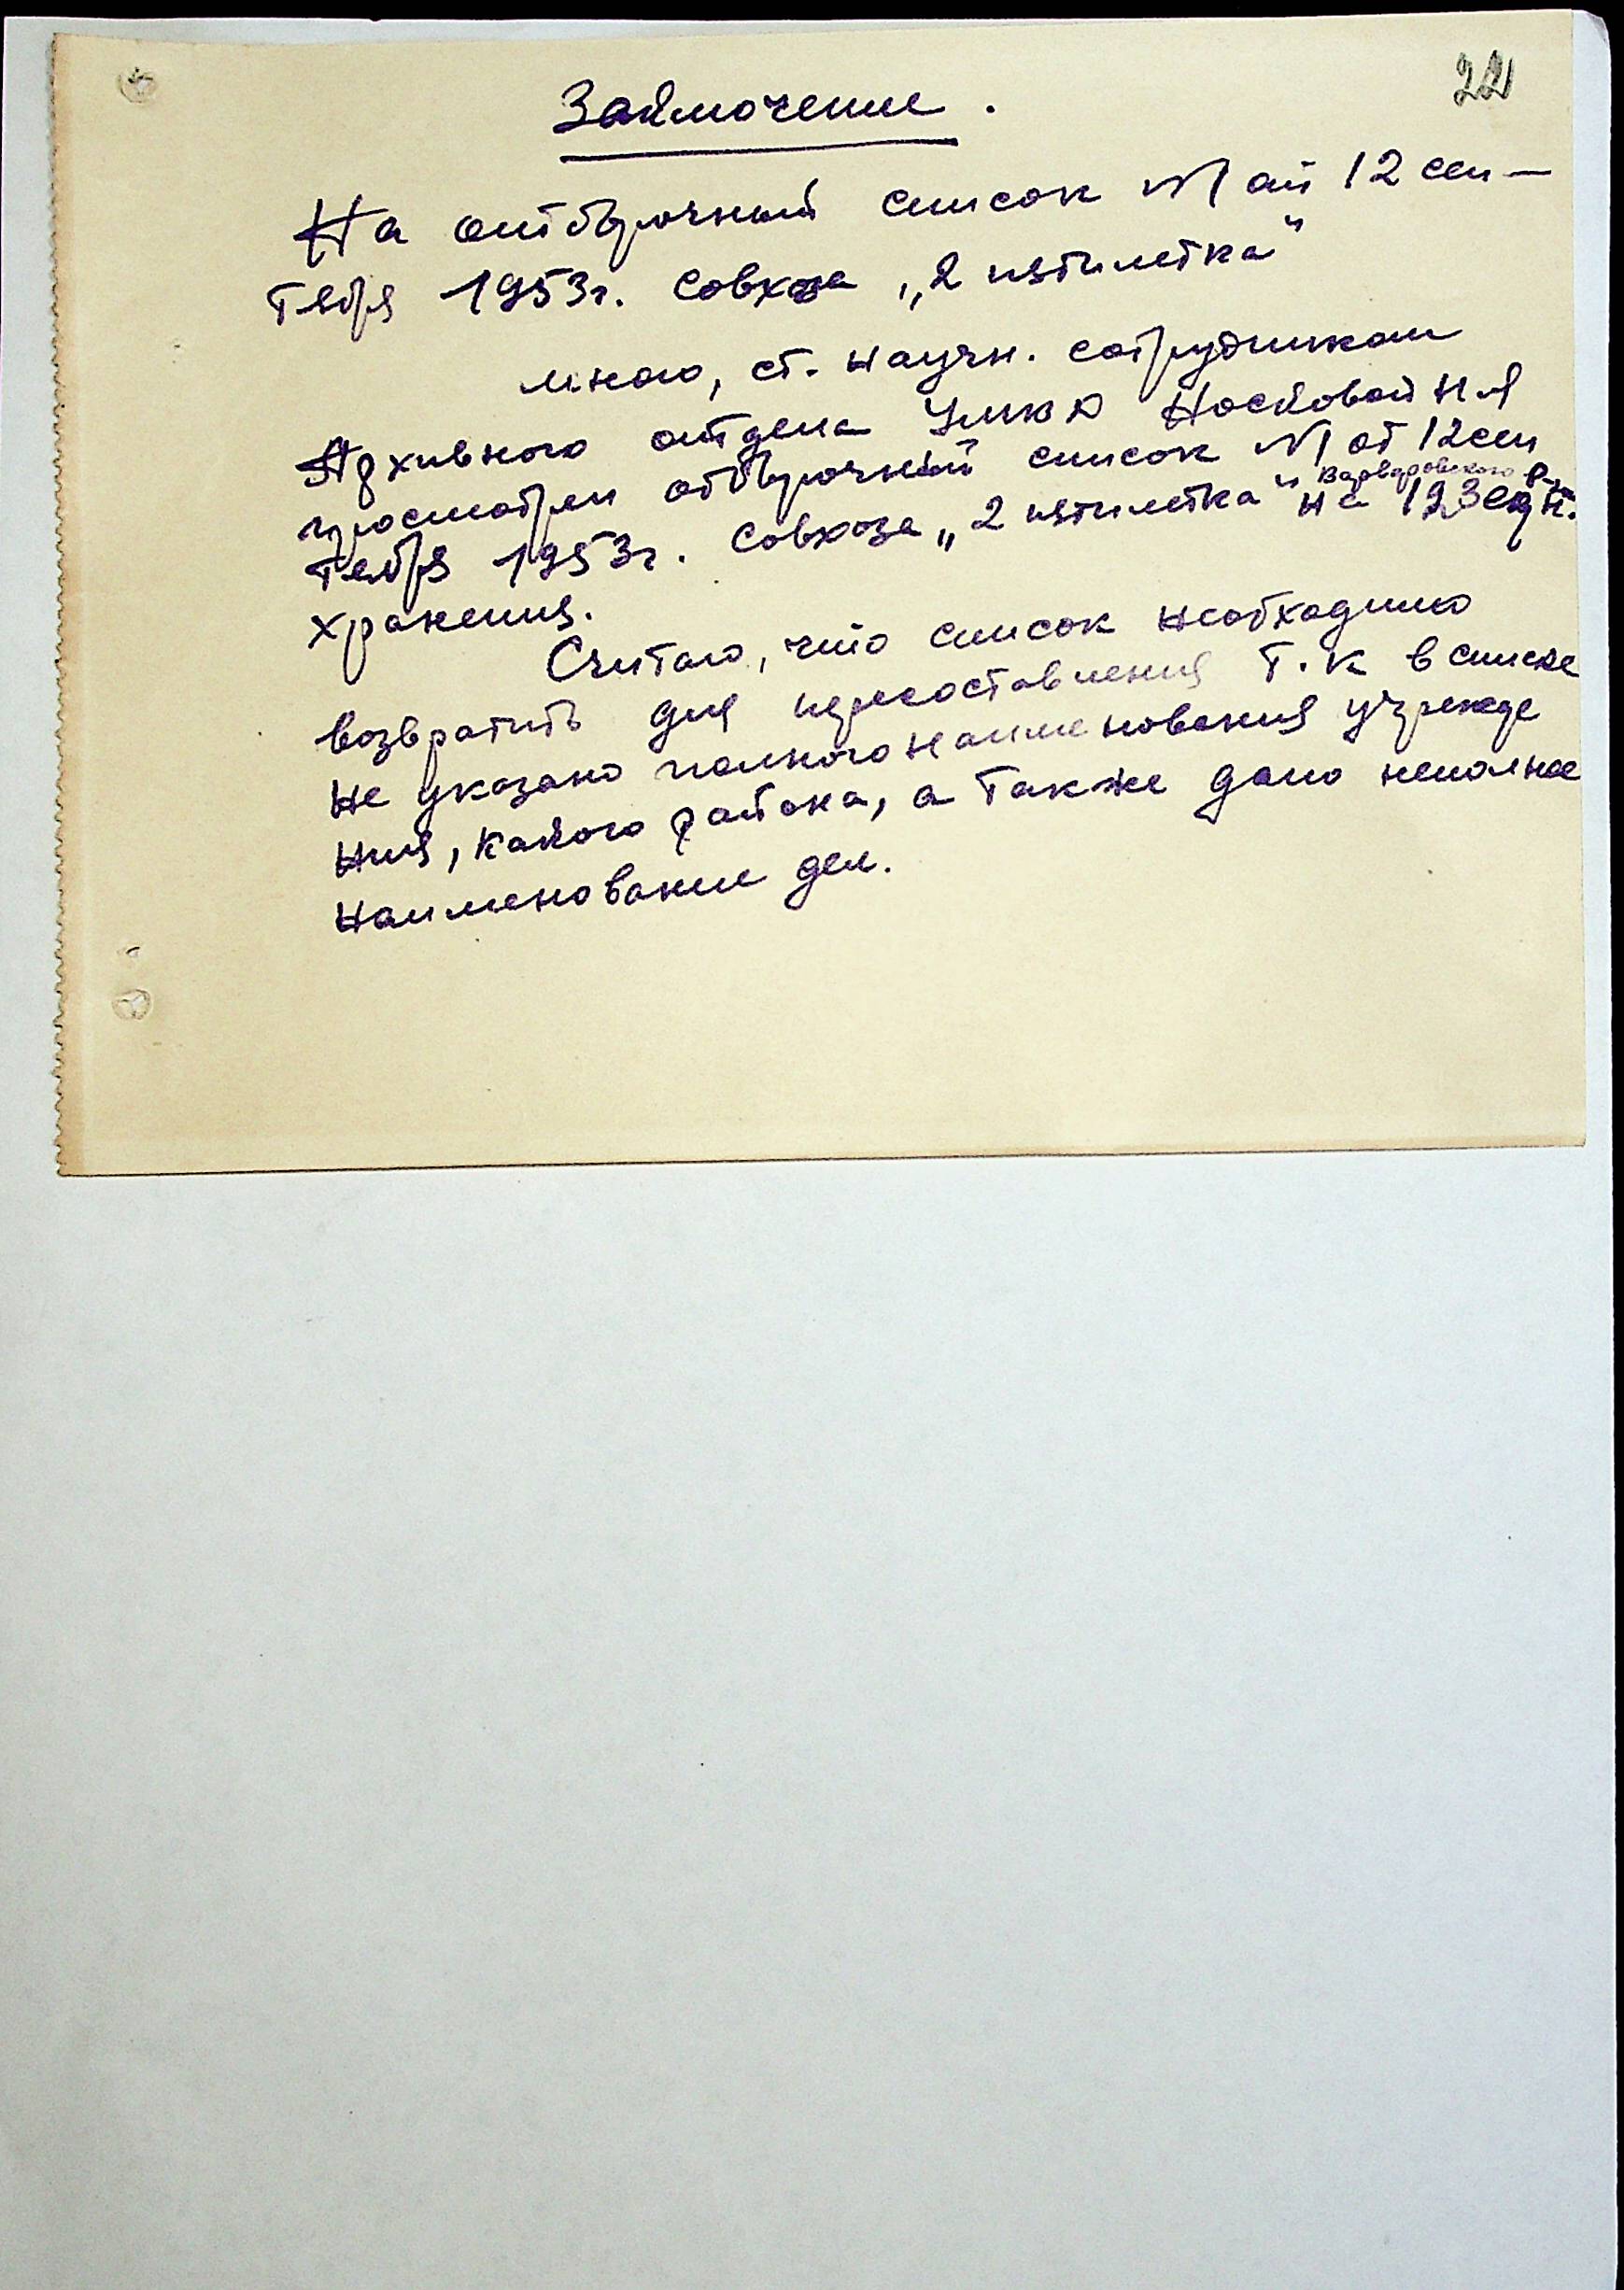 22
Заключение.
На отборочный список №1 от 12 сен-
тября 1953г. Совхоза „2 пятилетка"
мною, ст. научн. сотрудником
Архивного отдела Носковой Н Я
просмотрен отборочный список №1 от 12 сен
Варваровского р-
тября 1953г. Совхоза „2 пятилетка" на 123 ед.
хранения.
Считаю, что список необходимо
возвратить для пересоставления т.к в списке
не указано полного наименования учрежде
ния, какого района, а также дано неполное
наименование дел.